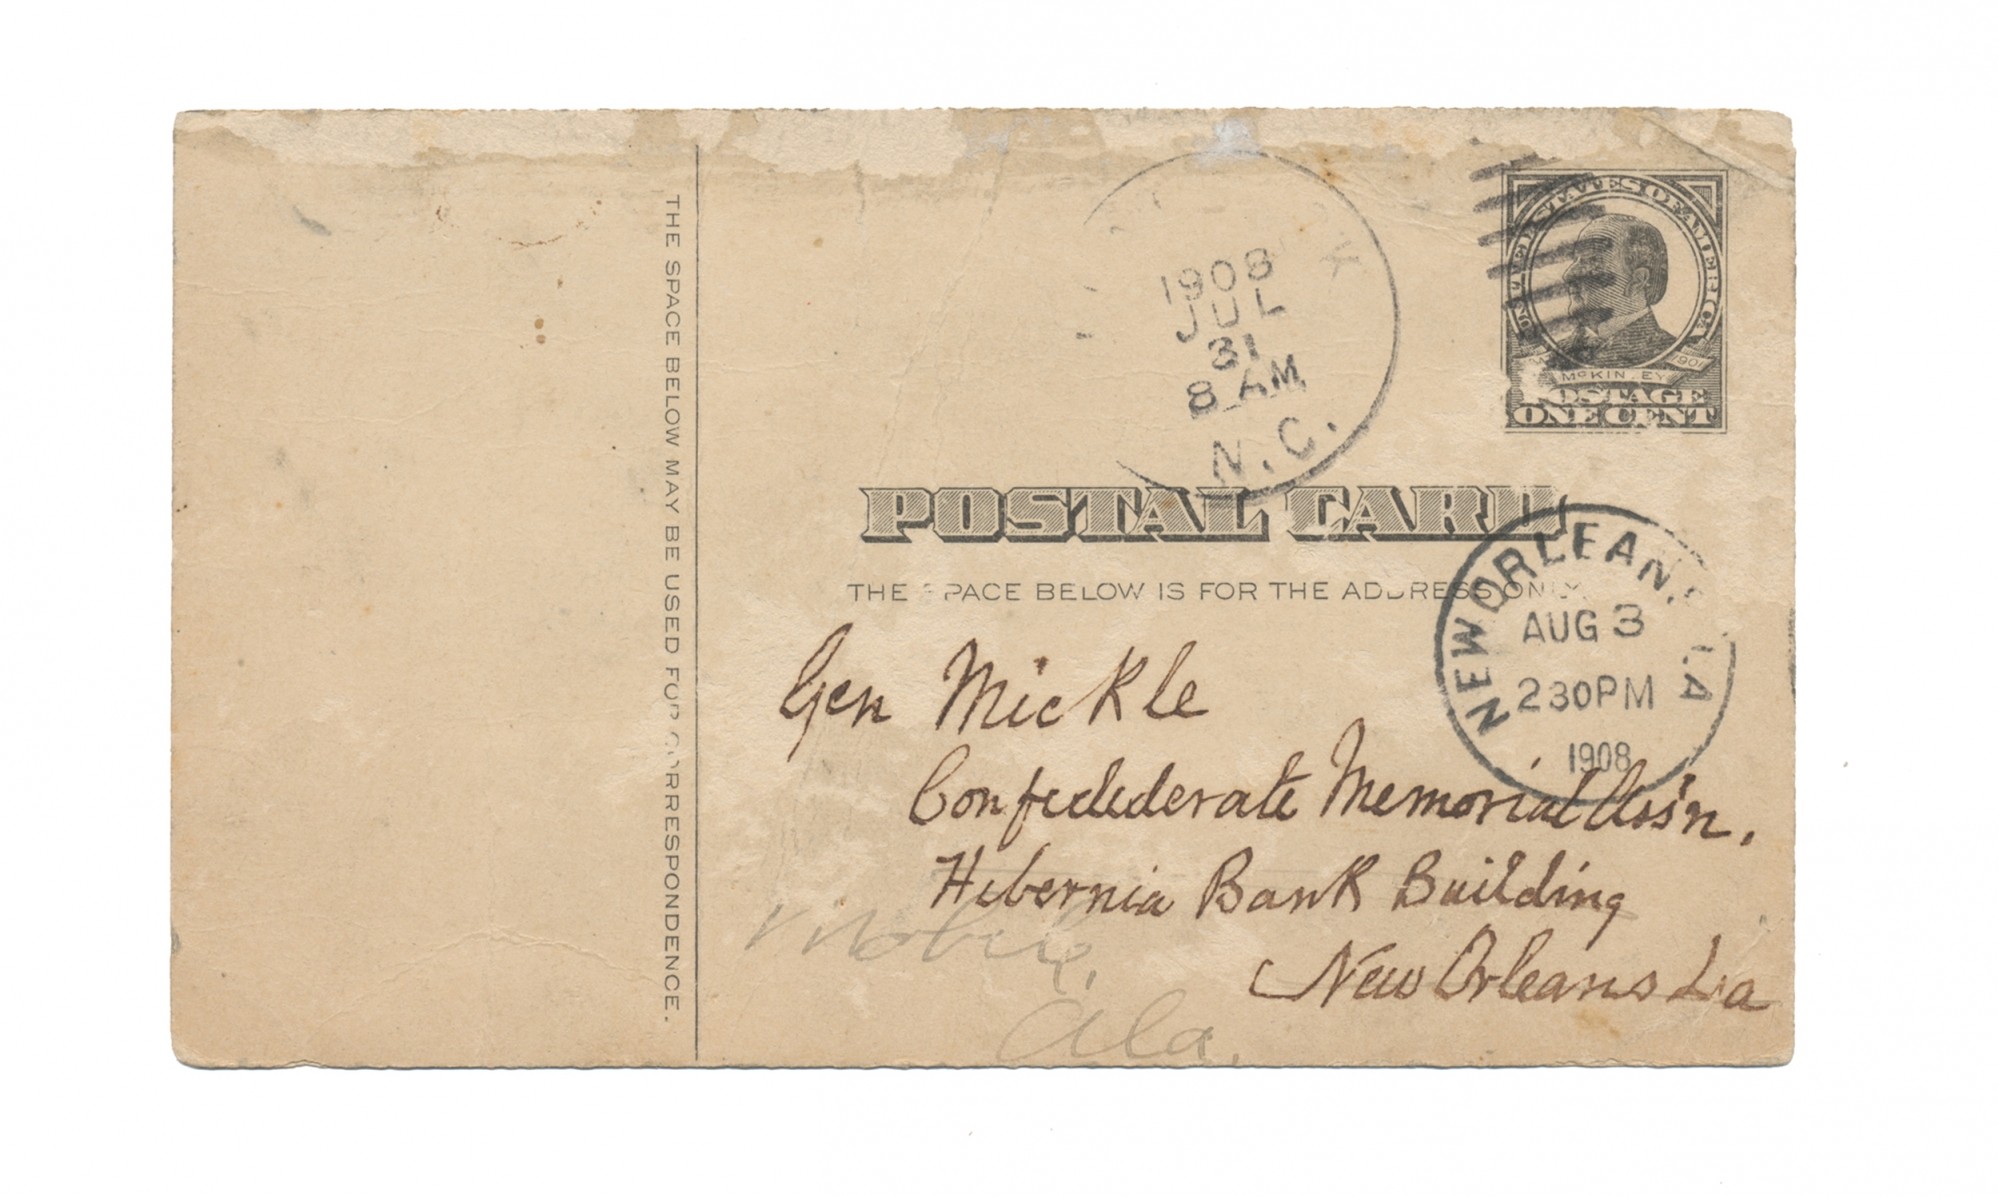 THE SPACE BELOW MAY BE USED FOR CORRESPONDENCE.
K
1908
JUL
31
8 AM
N.C.
UNITED STATES OF AMERICA
1901
McKINLEY
POSTAGE
ONE CENT
POSTAL CARD
THE SPACE BELOW IS FOR THE ADDRESS ONLY.
NEW ORLEANS LA
AUG 3
230PM
1908
Gen Mickle
Confedederate Memorial Ass'n.
Hibernia Bank Building
New Orleans La
Mobile,
Ala.